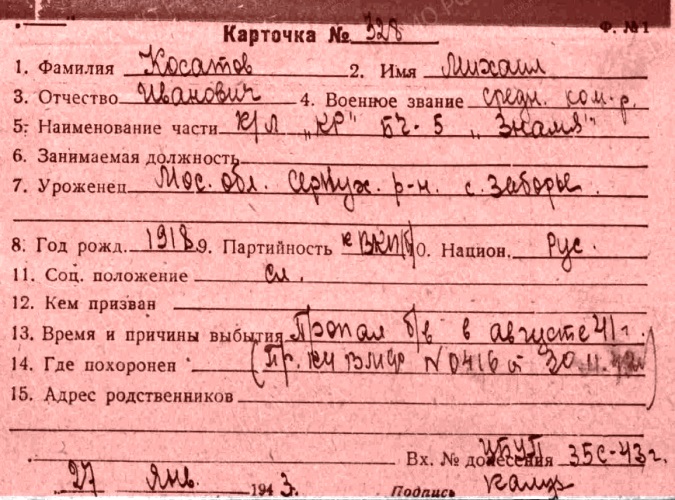 Ф. №1
Карточка № 328
1. Фамилия Косатов 2. Имя Михаил
3. Отчество Иванович 4. Военное звание средн. ком-р.
5. Наименование части К/Л "КР" БЧ-5 "Знамя"
6. Занимаемая должность
7. Уроженец Мос. обл. Серпух. р-н. с. Заборье.
8. Год рожд. 1918 9. Партийность к ВКП(б) 10. Национ. Рус.
11. Соц. положение сл.
12. Кем призван
13. Время и причины выбытия Пропал б/в в августе 41 г.
14. Где похоронен (Пр. НК ВМФ N 0416 от 30
15. Адрес родственников
Вх. № донесения 35с-43 г.
27 янв. 1943 г.
Подпись